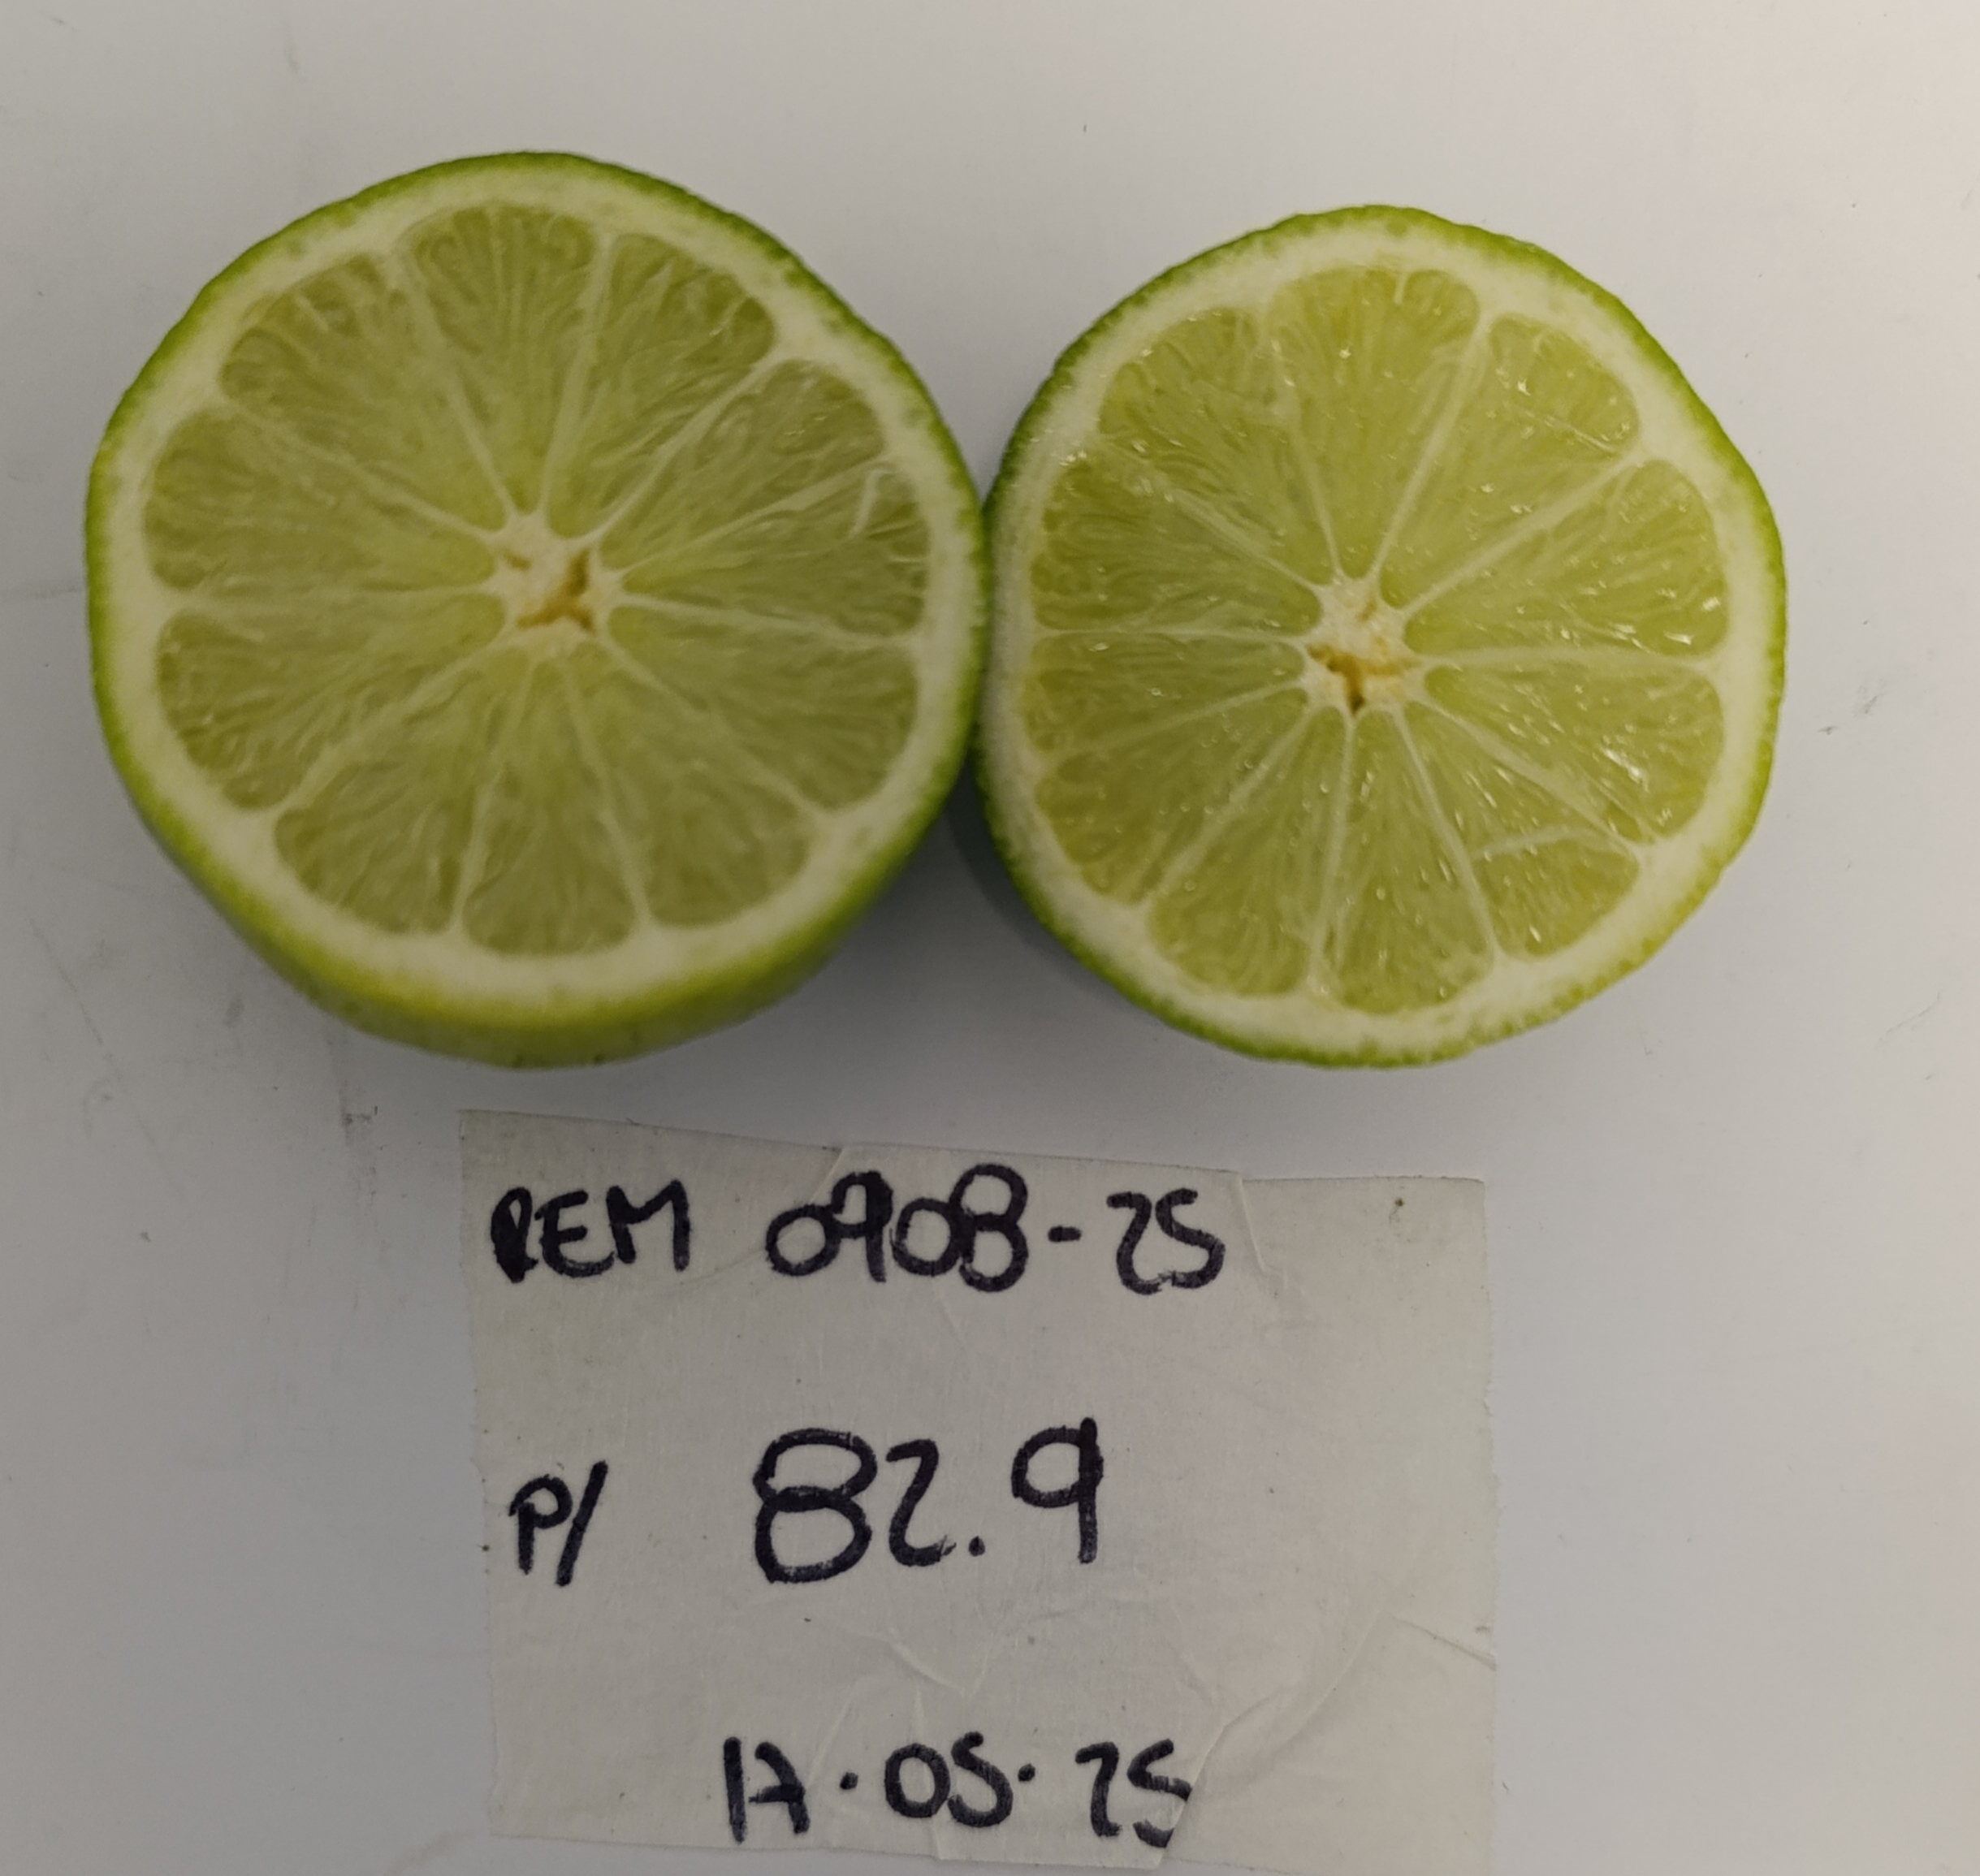 REM 0908-25
P/ 82.9
17.05.25